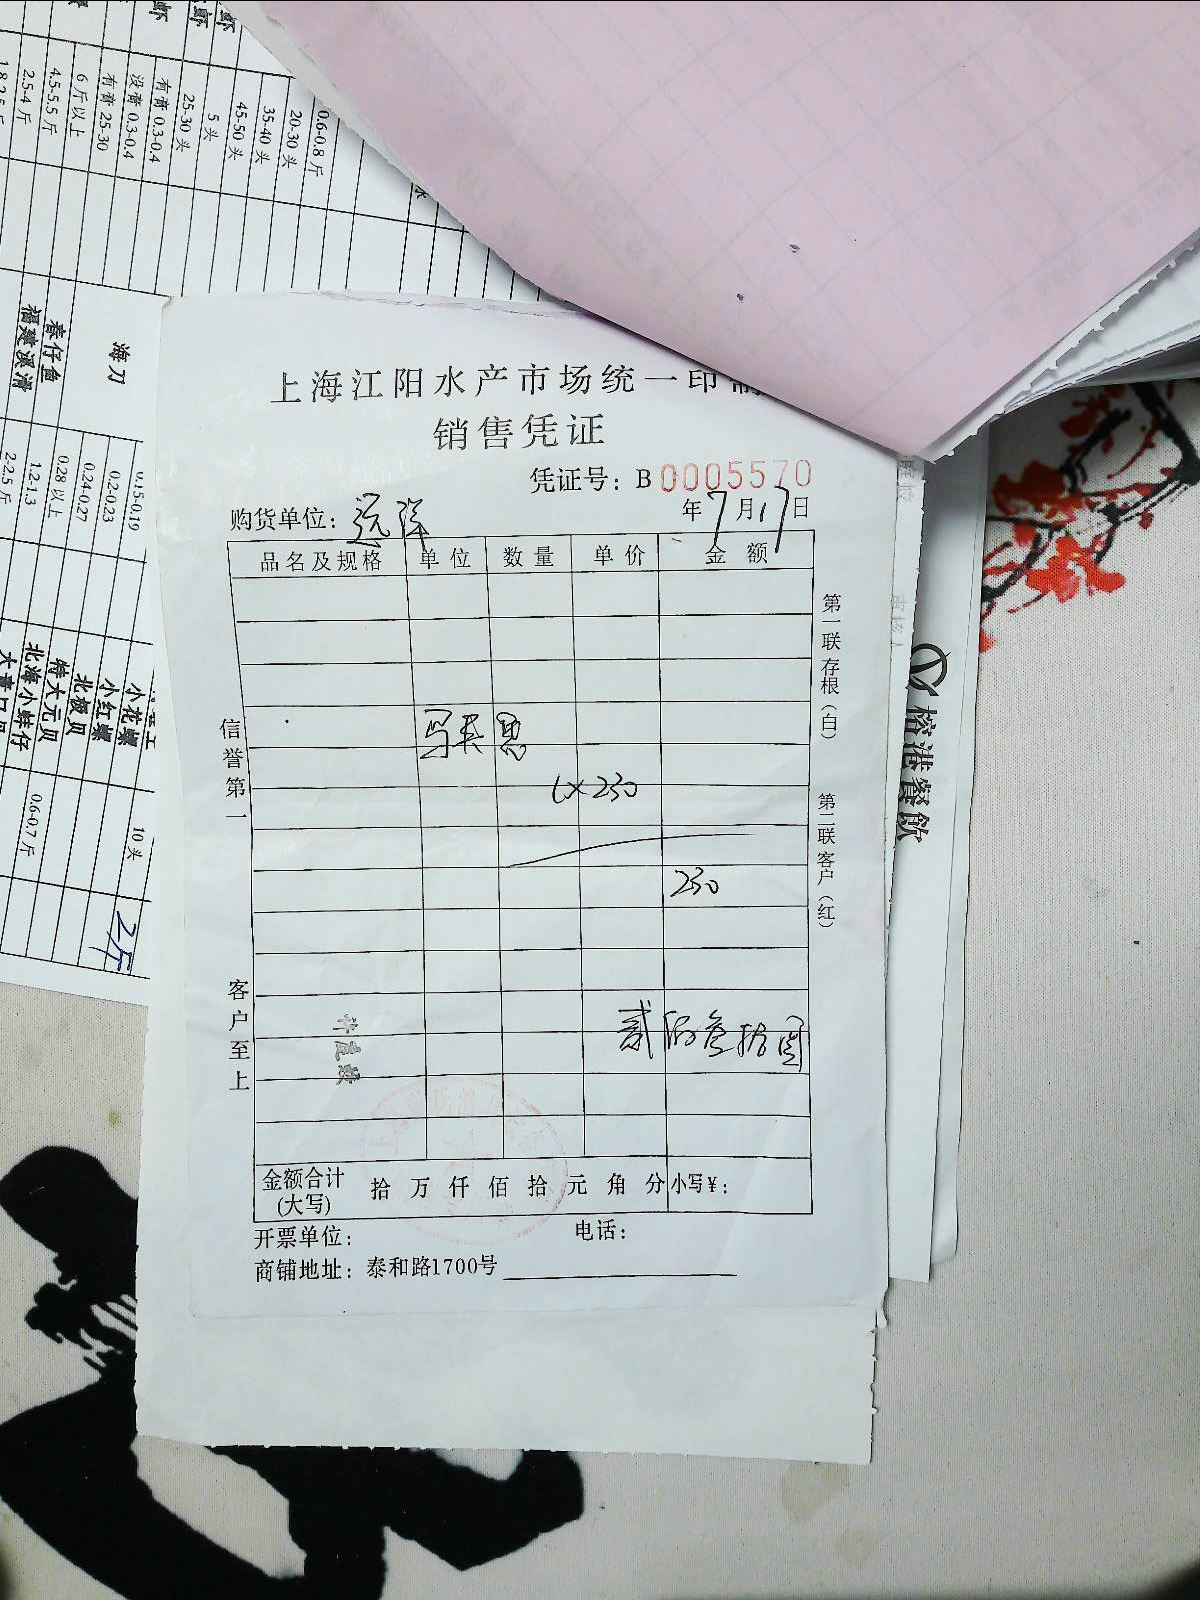 上海江阳水产市场统一印
销售凭证
凭证号：B 0005570
购货单位：远洋 年7月17日
品名及规格 单位 数量 单价 金额
1×230
230
贰佰叁拾圆
金额合计(大写) 拾 万 仟 佰 拾 元 角 分 小写¥：
开票单位： 电话：
商铺地址：泰和路1700号
信誉第一
客户至上
第一联存根(白)
第二联客户(红)
榕港餐飲
0.6-0.8 斤
20-30 头
35-40 头
45-50 头
5 头
25-30 头
有膏 0.3-0.4
没膏 0.3-0.4
有膏 25-30
6 斤以上
4.5-5.5 斤
2.5-4 斤
海刀
春仔鱼
福建溪滑
0.15-0.19
0.2-0.23
0.24-0.27
0.28 以上
1.2-1.3
2-2.5 斤
小花螺
小红螺
北极贝
特大元贝
北海小蚌仔
10 头
0.6-0.7 斤
2斤